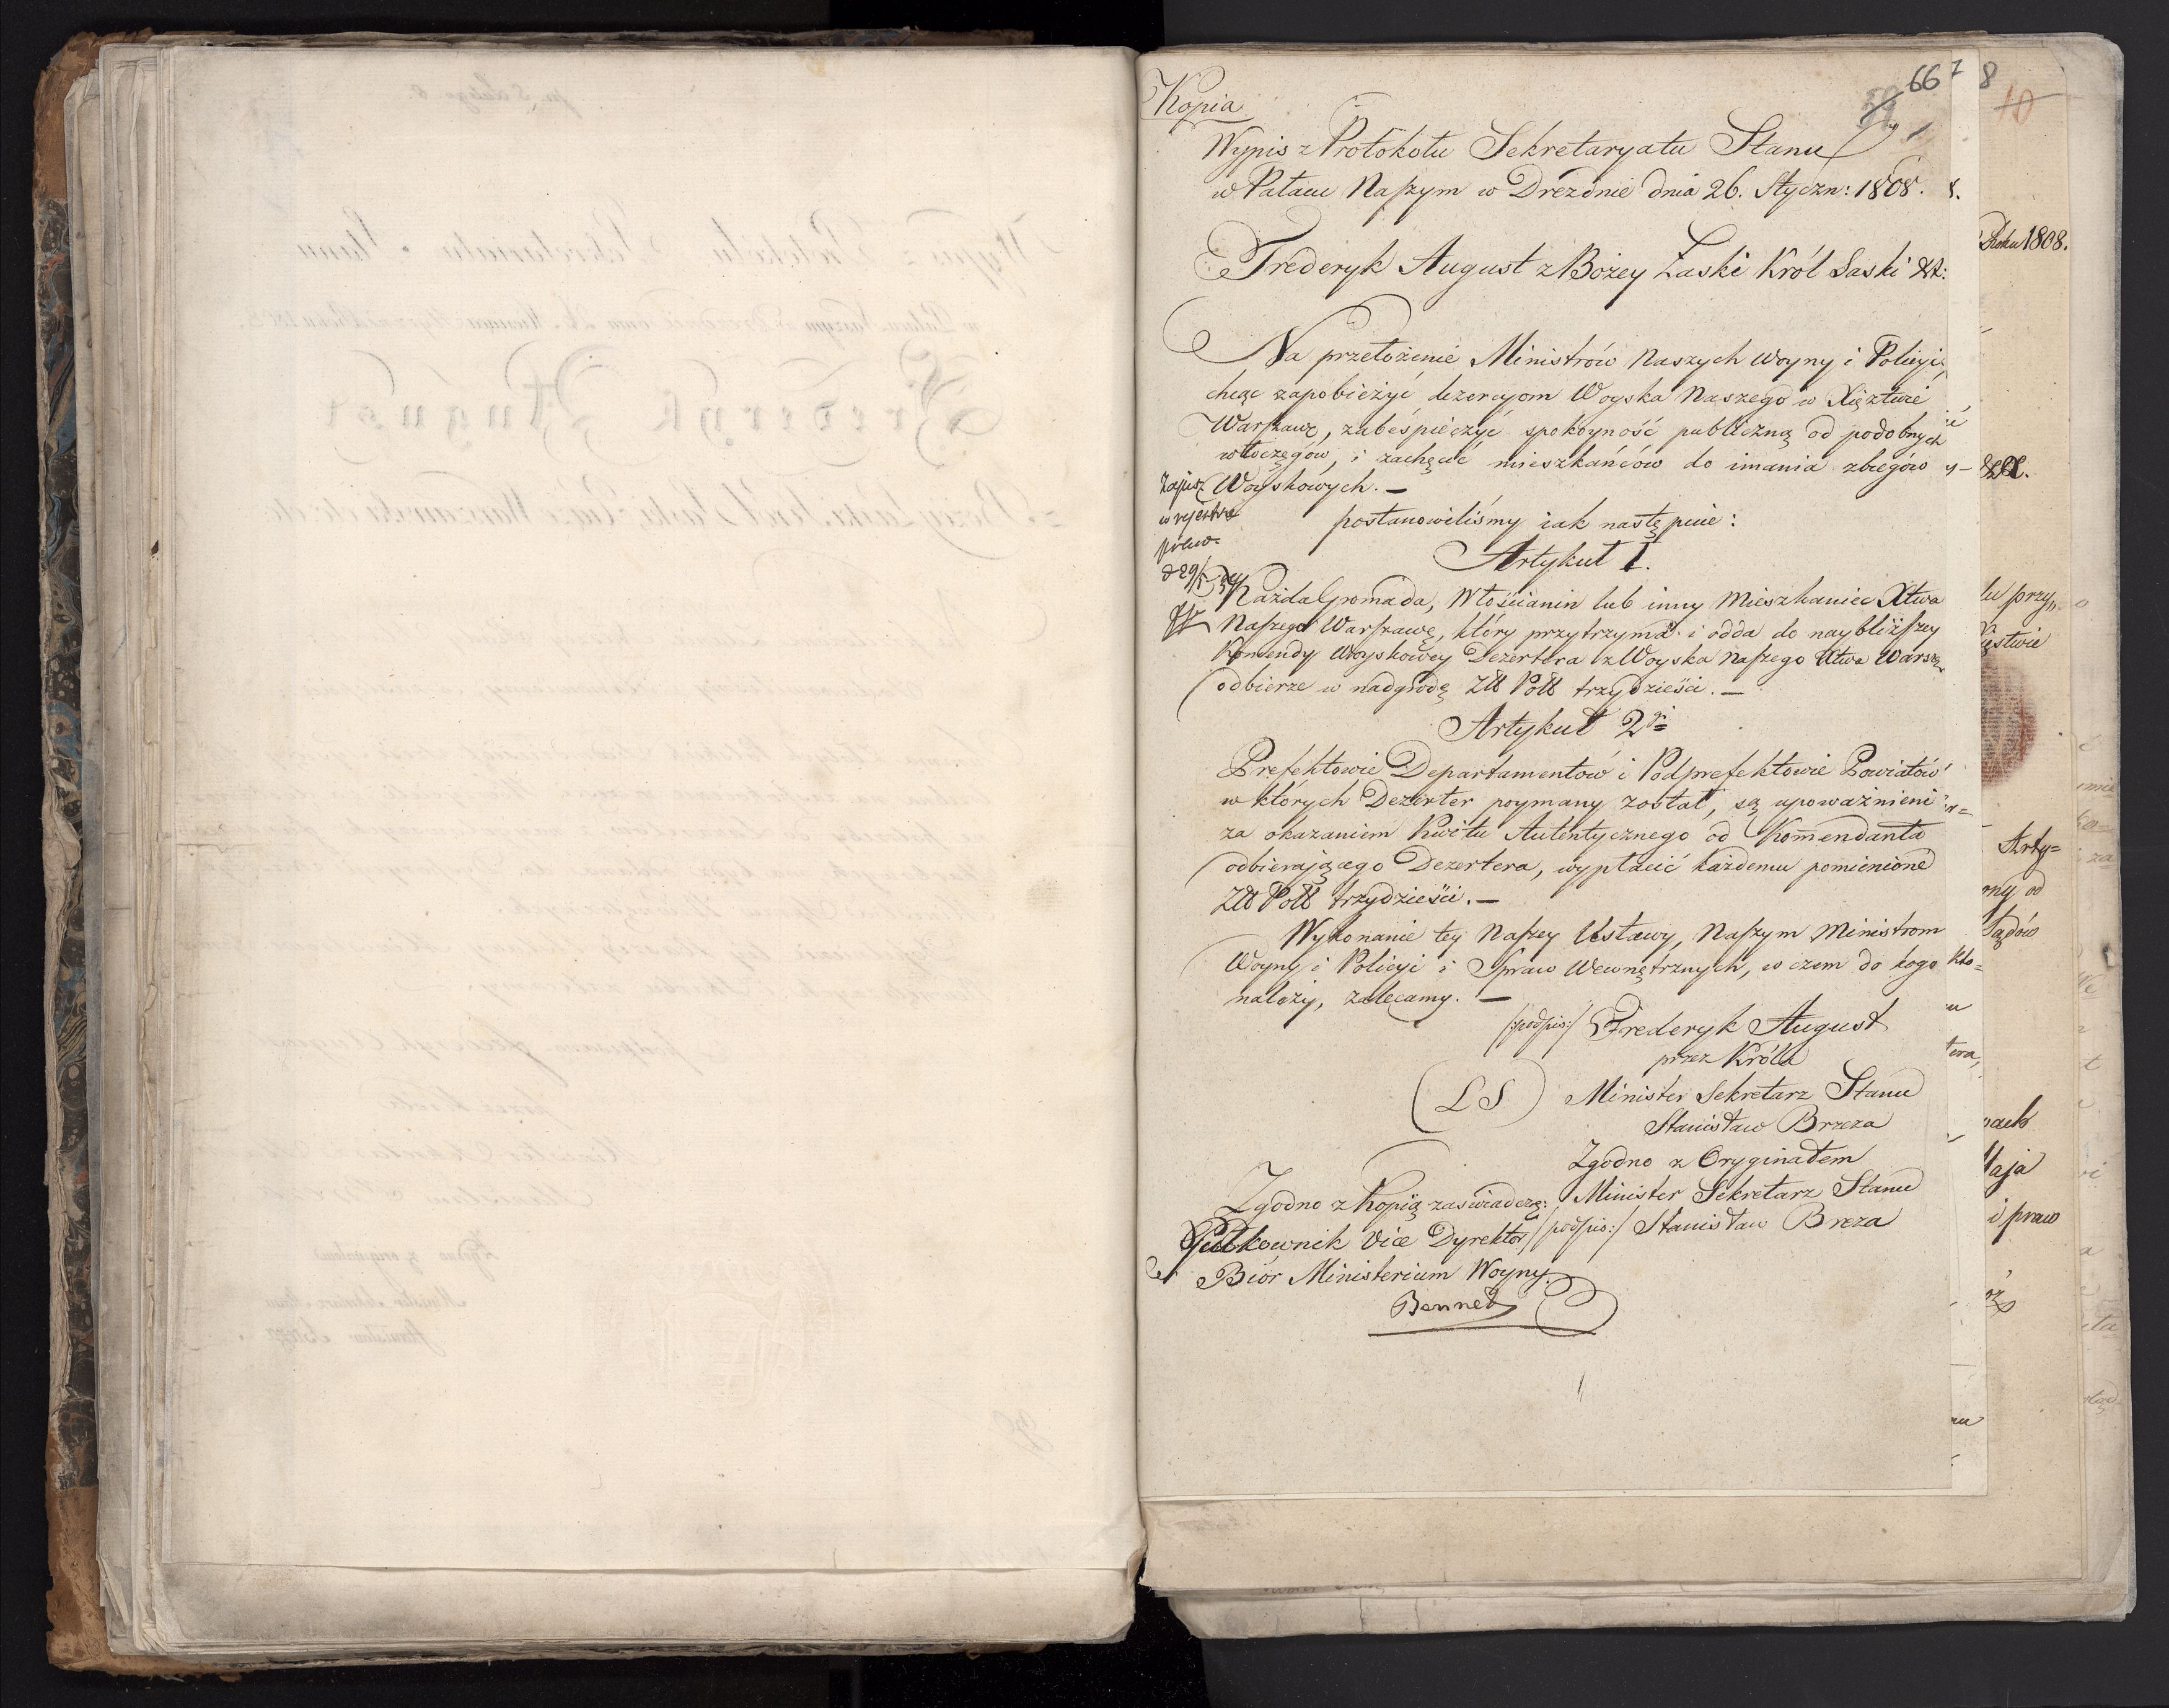 Kopia
667
8
10
Wypis z Protokołu Sekretaryatu Stanu
w Pałacu Naszym w Dreznie dnia 26. Styczn: 1808.
Frederyk August z Bożey Łaski Król Saski &t:
Na przełożenie Ministrów Naszych Woyny i Policyi,
chcąc zapobieżyć dezercyom Woyska Naszego w Xięztwie
Warszaws, zabespieczyć spokoyność publiczną od podobnych
włoczęgów, i zachęcić mieszkańców do imania zbiegów
Woyskowych. —
postanowiliśmy iak następuie:
Artykuł 1.
Każda Gromada, Włościanin lub inny Mieszkaniec Xtwa
Naszego Warszaws, który przytrzyma i odda do naybliższey
Komendy Woyskowey Dezertera z Woyska Naszego Xtwa Warsz
odbierze w nadgrodę Złł Poll trzydzieści. —
Artykuł 2gi
Prefektowie Departamentów i Podprefektowie Powiatów
w których Dezerter poymany został, są upoważnieni
za okazaniem Kwitu Autentycznego od Komendanta
odbierającego Dezertera, wypłacić każdemu pomienione
Złł Poll trzydzieści. —
Wykonanie tey Naszey Ustawy, Naszym Ministrom
Woyny i Policyi i Spraw Wewnętrznych, w czem do kogo
należy, zalecamy. —
/podpis:/ Frederyk August
przez Króla
(LS) Minister Sekretarz Stanu
Stanisław Brzeza
Zgodno z Oryginałem
Minister Sekretarz Stanu
/podpis:/ Stanisław Breza
Zgodno z Kopią zaswiadczę:
Pułkownik Vice Dyrektor
Biór Ministerium Woyny
Bennet
Zapisz
w rejestra
Roku 1808.
lu przy„
ęstwie
Arty=
ony od
ądów
kto=
tera,
i praw